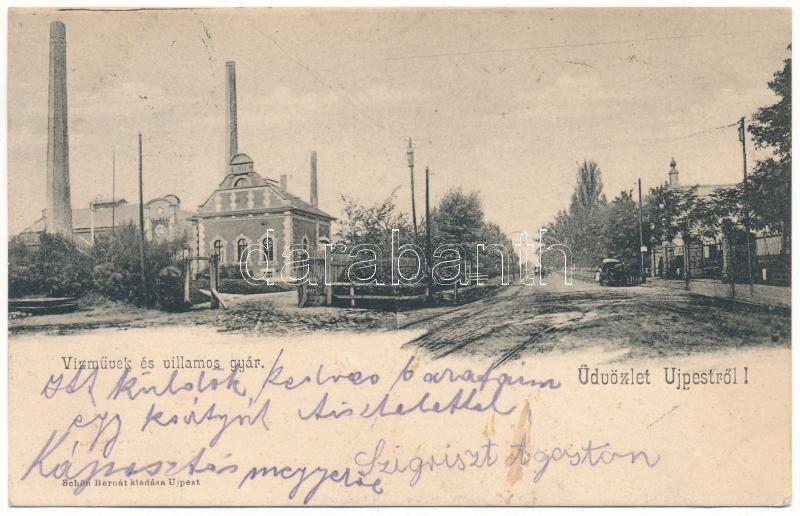 darabanth
Vizművek és villamos gyár.
Üdvözlet Ujpestről!
Itt küldök kedves barátaim
egy kártyát tisztelettel
Káposztás megyere
Szigriszt Agoston
Schön Bernát kiadása Ujpest